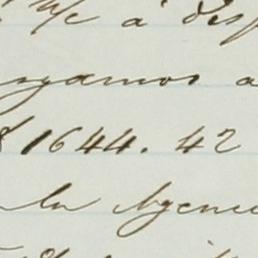 m/c a disp
rgamos a
$1644.42
la Agenci